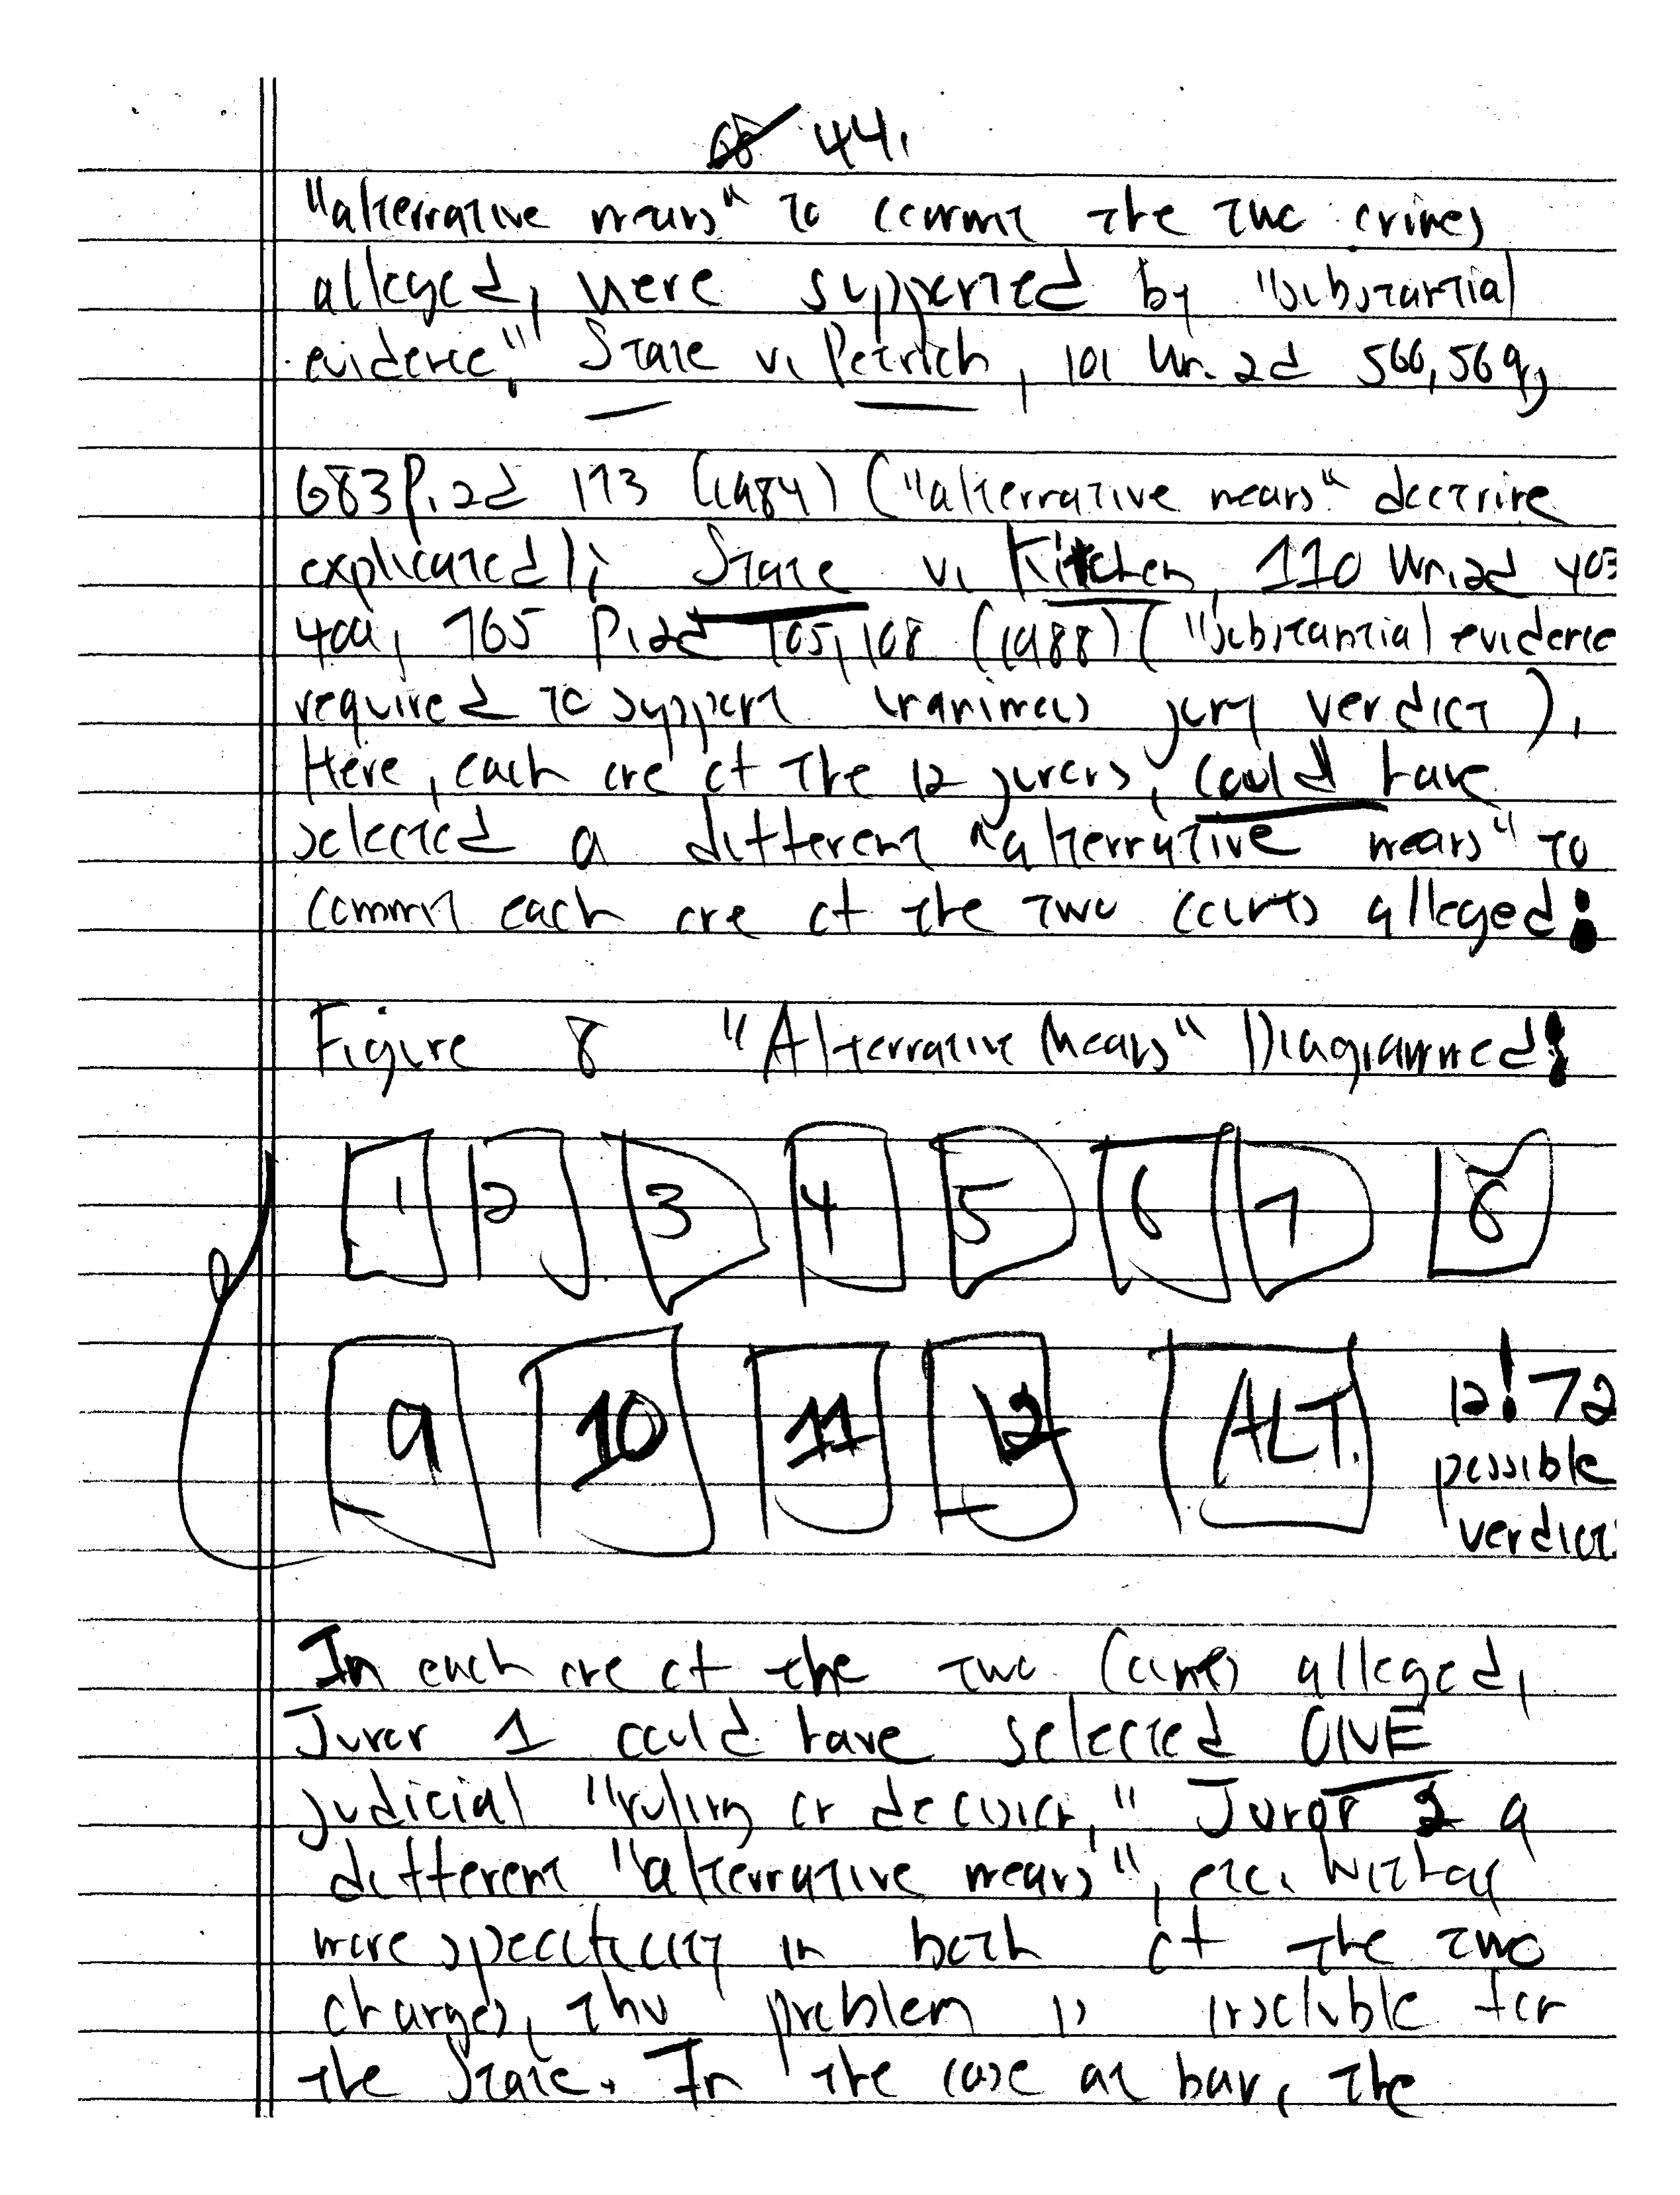 44.
"alternative means" to commit the two crimes
alleged, were supported by "substantial
evidence." State v. Petrich, 101 Wn. 2d 566, 569,
683 P.2d 173 (1984) ("alternative means" doctrine
explicated); State v. Kitchen, 110 Wn.2d 403
409, 765 P.2d 105, 108 (1988) ("substantial evidence
required to support unanimous jury verdict).
Here, each one of the 12 jurors, could have
selected a different "alternative means" to
commit each one of the two counts alleged!
Figure 8 "Alternative Means" Diagrammed!
1 2 3 4 5 6 7 8
9 10 11 12 ALT. 12! 72
possible
verdict
In each one of the two counts alleged,
Juror 1 could have selected ONE
judicial "ruling or decision," Juror 2 a
different "alternative means", etc. Without
more specificity in both of the two
charges, this problem is insoluble for
the State. In the case at bar, the